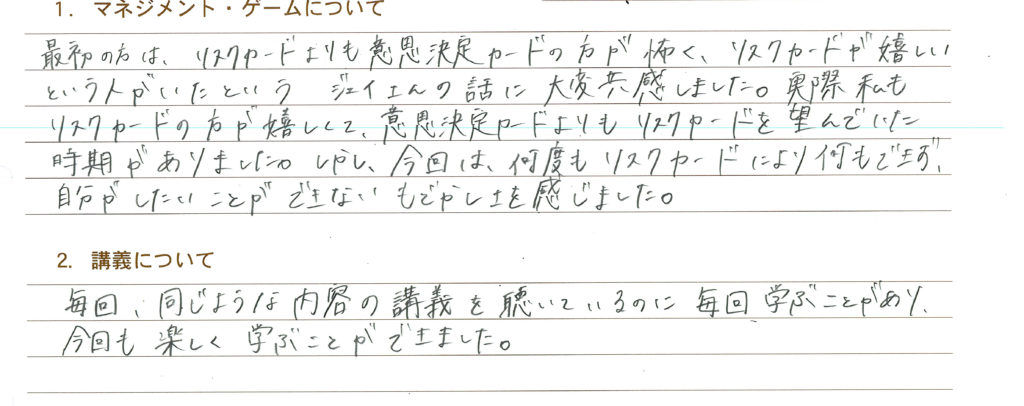 1. マネジメント・ゲームについて
最初の方は、リスクカードよりも意思決定カードの方が怖く、リスクカードが嬉しい
という人がいたという ジェイさんの話に 大変共感しました。実際私も
リスクカードの方が嬉しくて、意思決定カードよりもリスクカードを望んでいた
時期がありました。しかし、今回は、何度もリスクカードにより何もできず、
自分がしたいことができないもどかしさを感じました。
2. 講義について
毎回、同じような内容の講義を聴いているのに毎回学ぶことがあり、
今回も楽しく学ぶことができました。